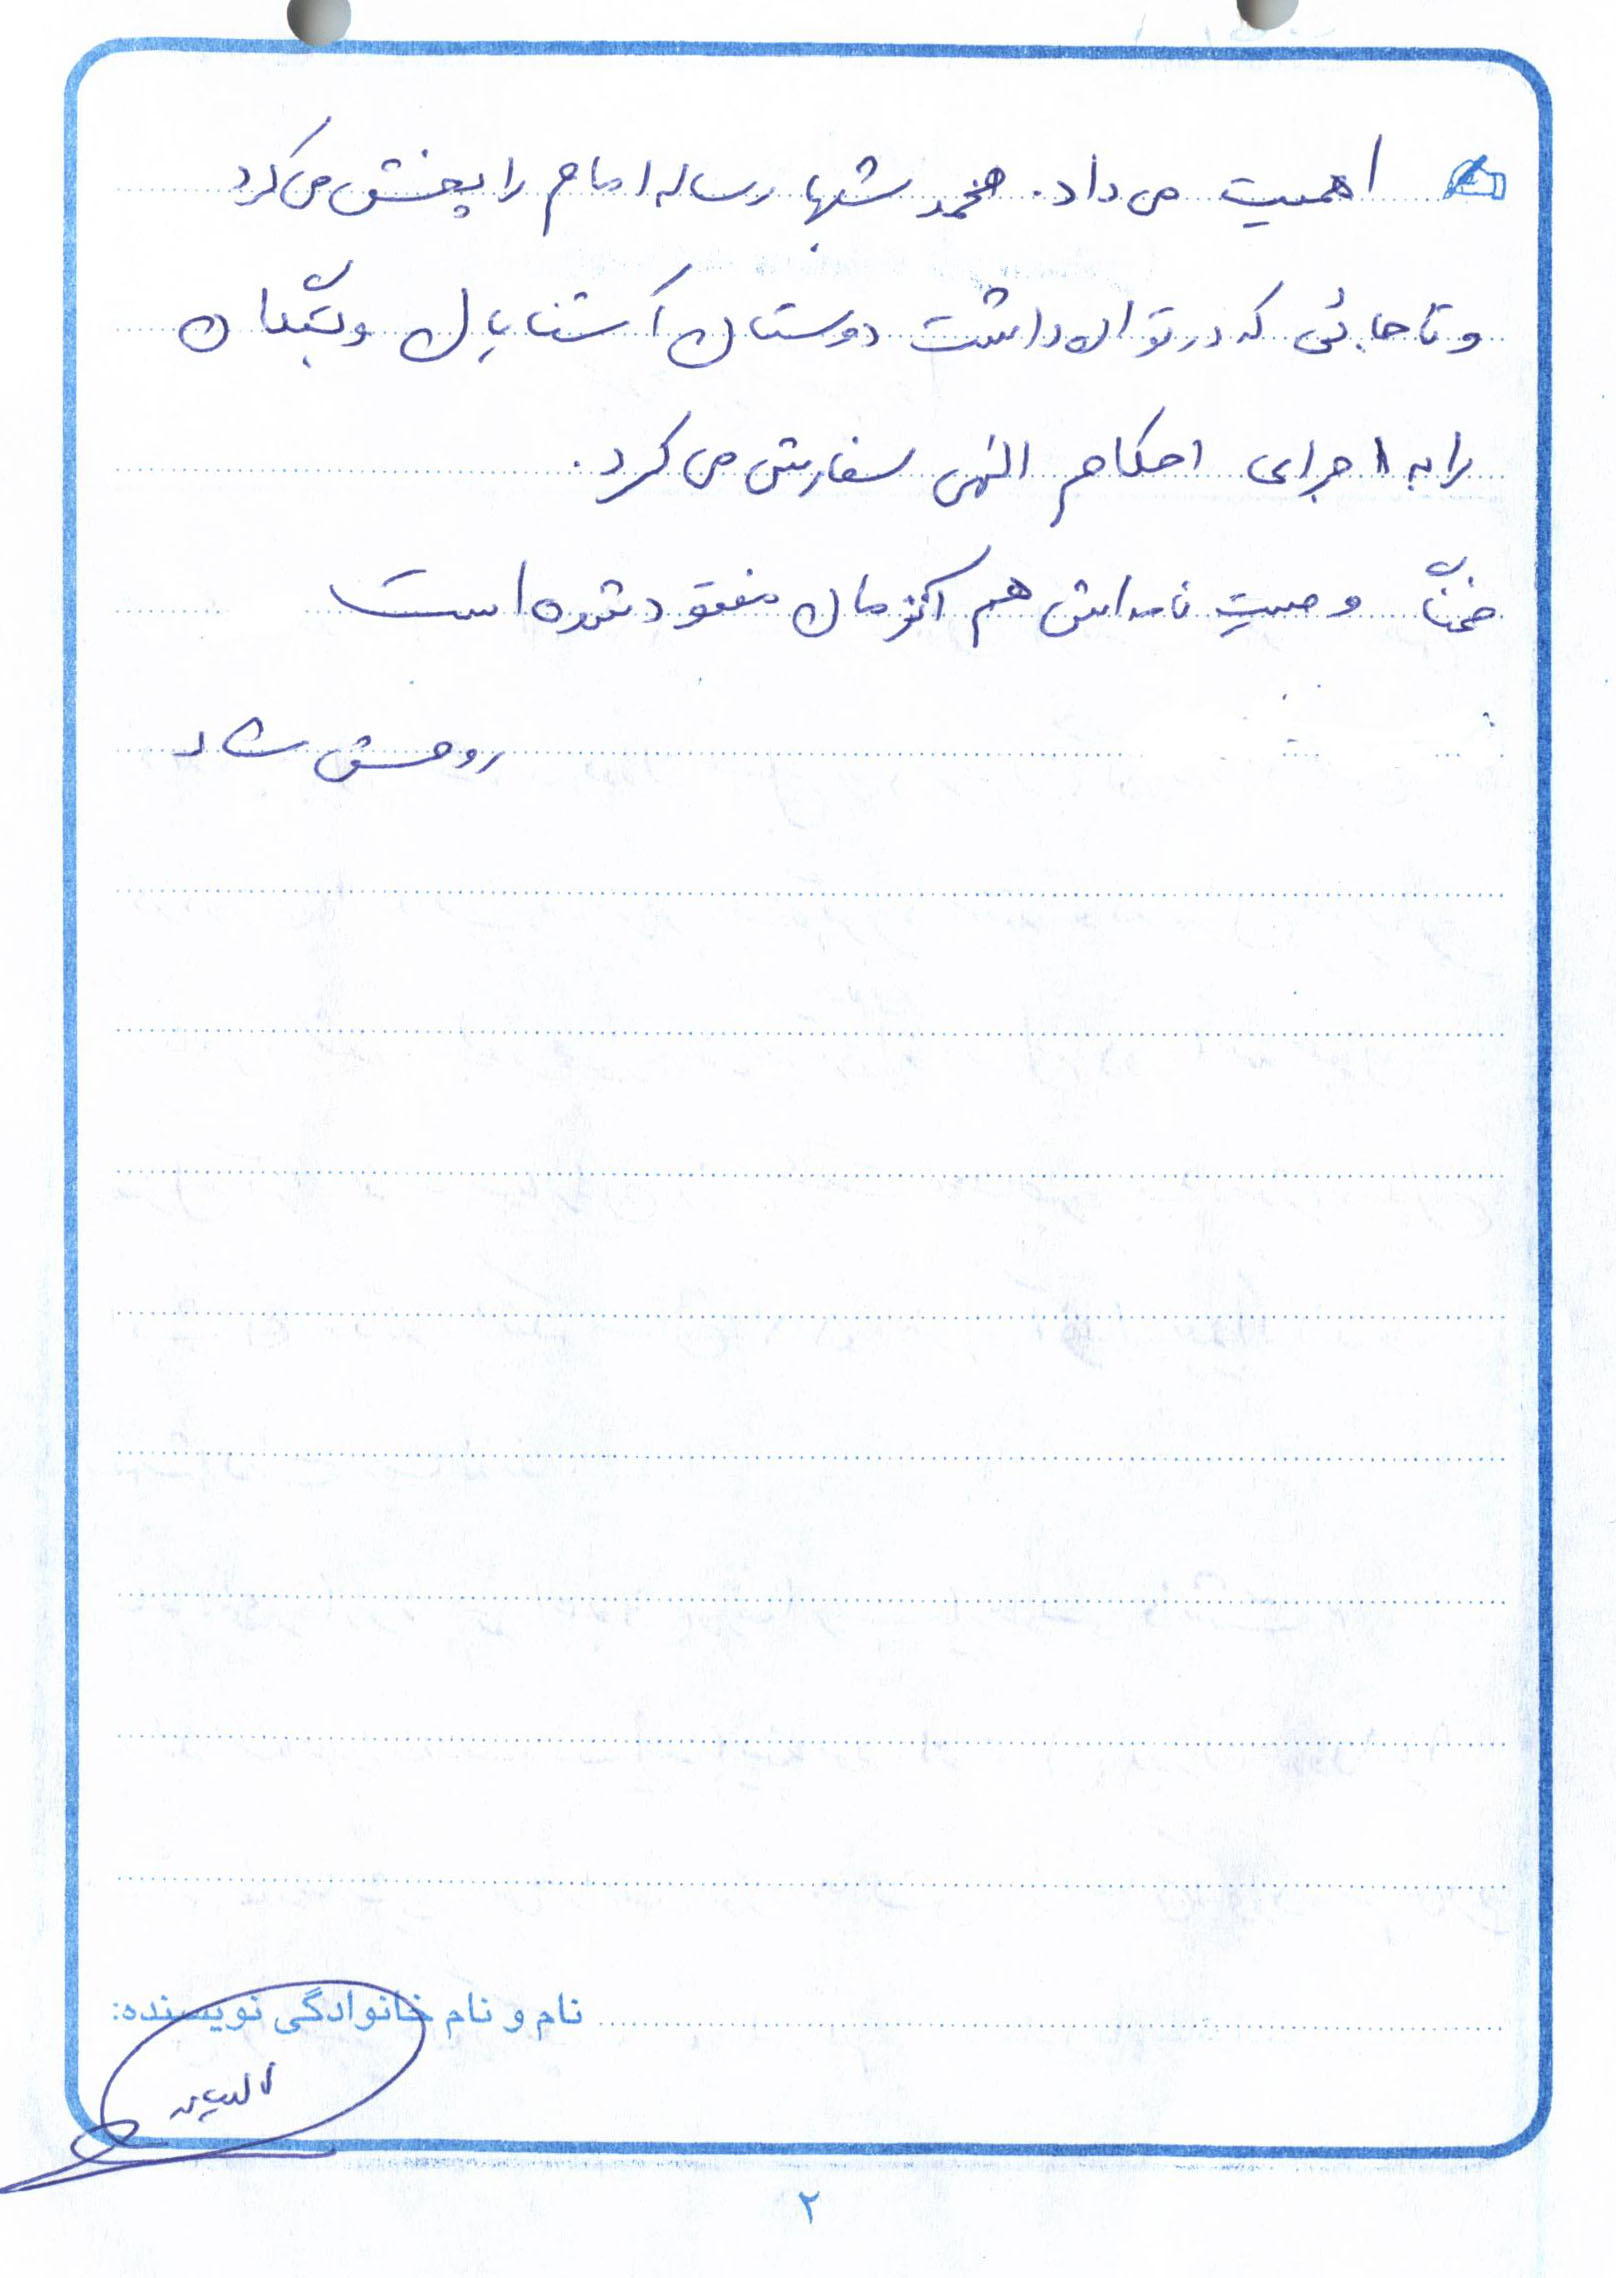 اهمیت می داد. محمد شبها رساله امام را پخش می کرد
و تا جائی که در توان داشت دوستان آشنایان و بستگان
را به اجرای احکام الهی سفارش می کرد.
ضمناً وصیت نامه اش هم اکنون مفقود شده است
روحش شاد
نام و نام خانوادگی نویسنده:
۲